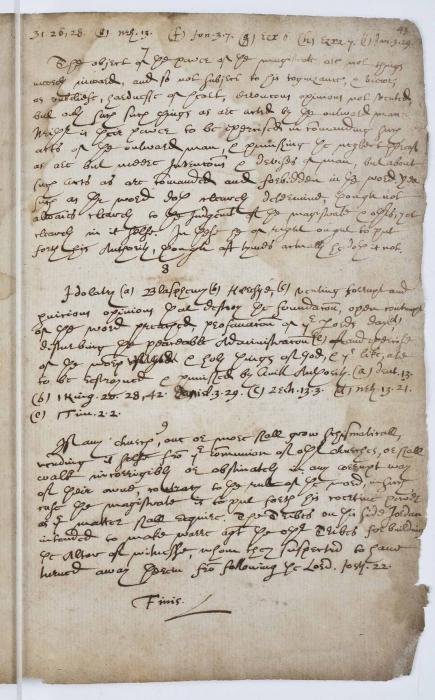 31. 26, 28. (e) Neh. 13. (f) Jon. 3. 7. (g) Ezr (h) Ezra 7. (i) Dan. 3. 29.
49
7
The object of the power of the magistrate are not things
meerly inward, and so not subject to his cognizance, & view,
as unbeliefe, hardnesse of heart, erroneous opinions not vented,
but only such things as are acted by the outward man.
Neither is their power to be exercised in comanding such
acts of the outward man, & punishing the neglect thereof
as are but meere inventions & devises of man, but about
such acts as are comanded and forbidden in the word, yea
such as the word doth clearly determine, though not
alwaies clearly to the Judgmt of the magistrate or others, yet
clearly in it selfe. In these he of right ought to put
forth his Authority, though oft tymes actually he doth it not.
8
Idolatry (a) Blasphemy (b) Heresye, (c) venting corrupt and
pnicious opinions that destroy the foundation, open contempt
of the word preached, profanation of ye Lords day (d)
disturbing the peaceable Administration & exercise
of the worship & holy things of God, & ye like, are
to be destroyed & punished by Civill Authority. (a) Deut. 13.
(b) 1 King. 20. 28, 42. Daniel. 3. 29. (c) Zech. 13. 3. (d) Neh. 13. 21.
(e) 1 Tim. 2. 2.
9
If any church, one or more shall grow schismaticall,
rending it selfe fro ye comunion of other churches, or shall
walk incorrigibly or obstinately in any corrupt way
of their owne, contrary to the rule of the word, in such
case the magistrate is to put forth his coercive power
as ye matter shall require. The Tribes on this side Jordan
intended to make warre agt the other Tribes for building
the Altar of witnesse, whom they suspected to have
turned away then fro following the Lord. Josh. 22.
Finis.